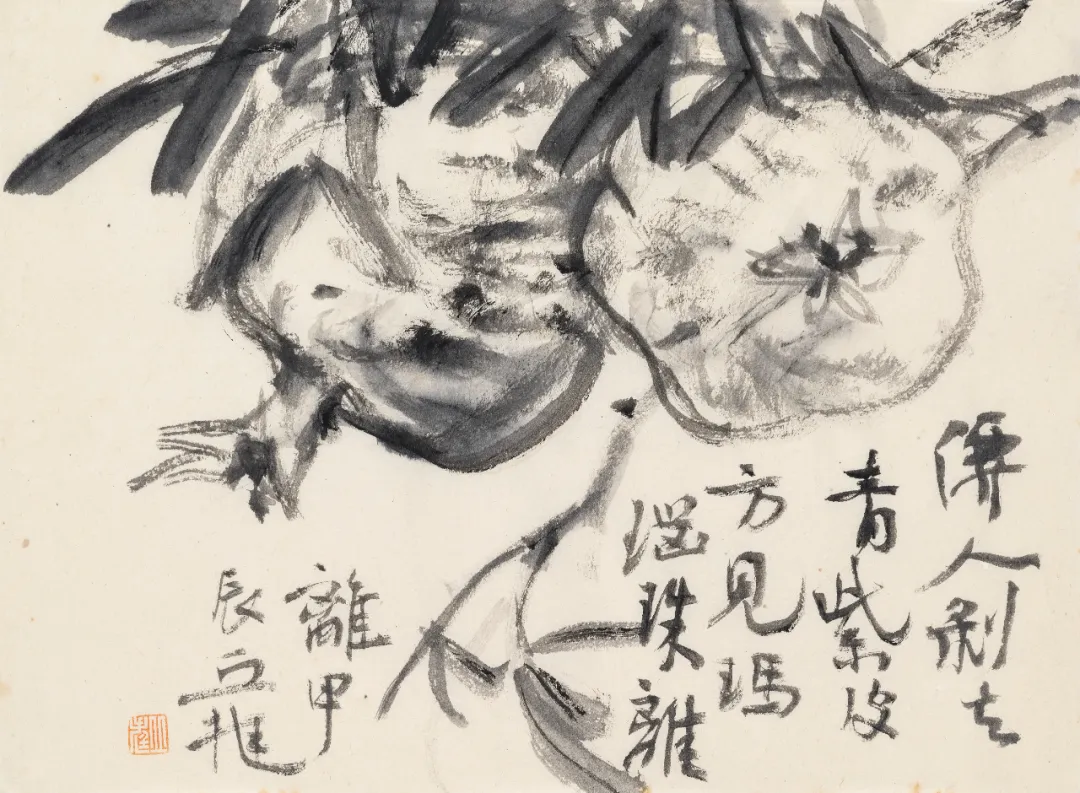 人剥去
青紫皮
方見瑪
瑙珠離
離甲
辰